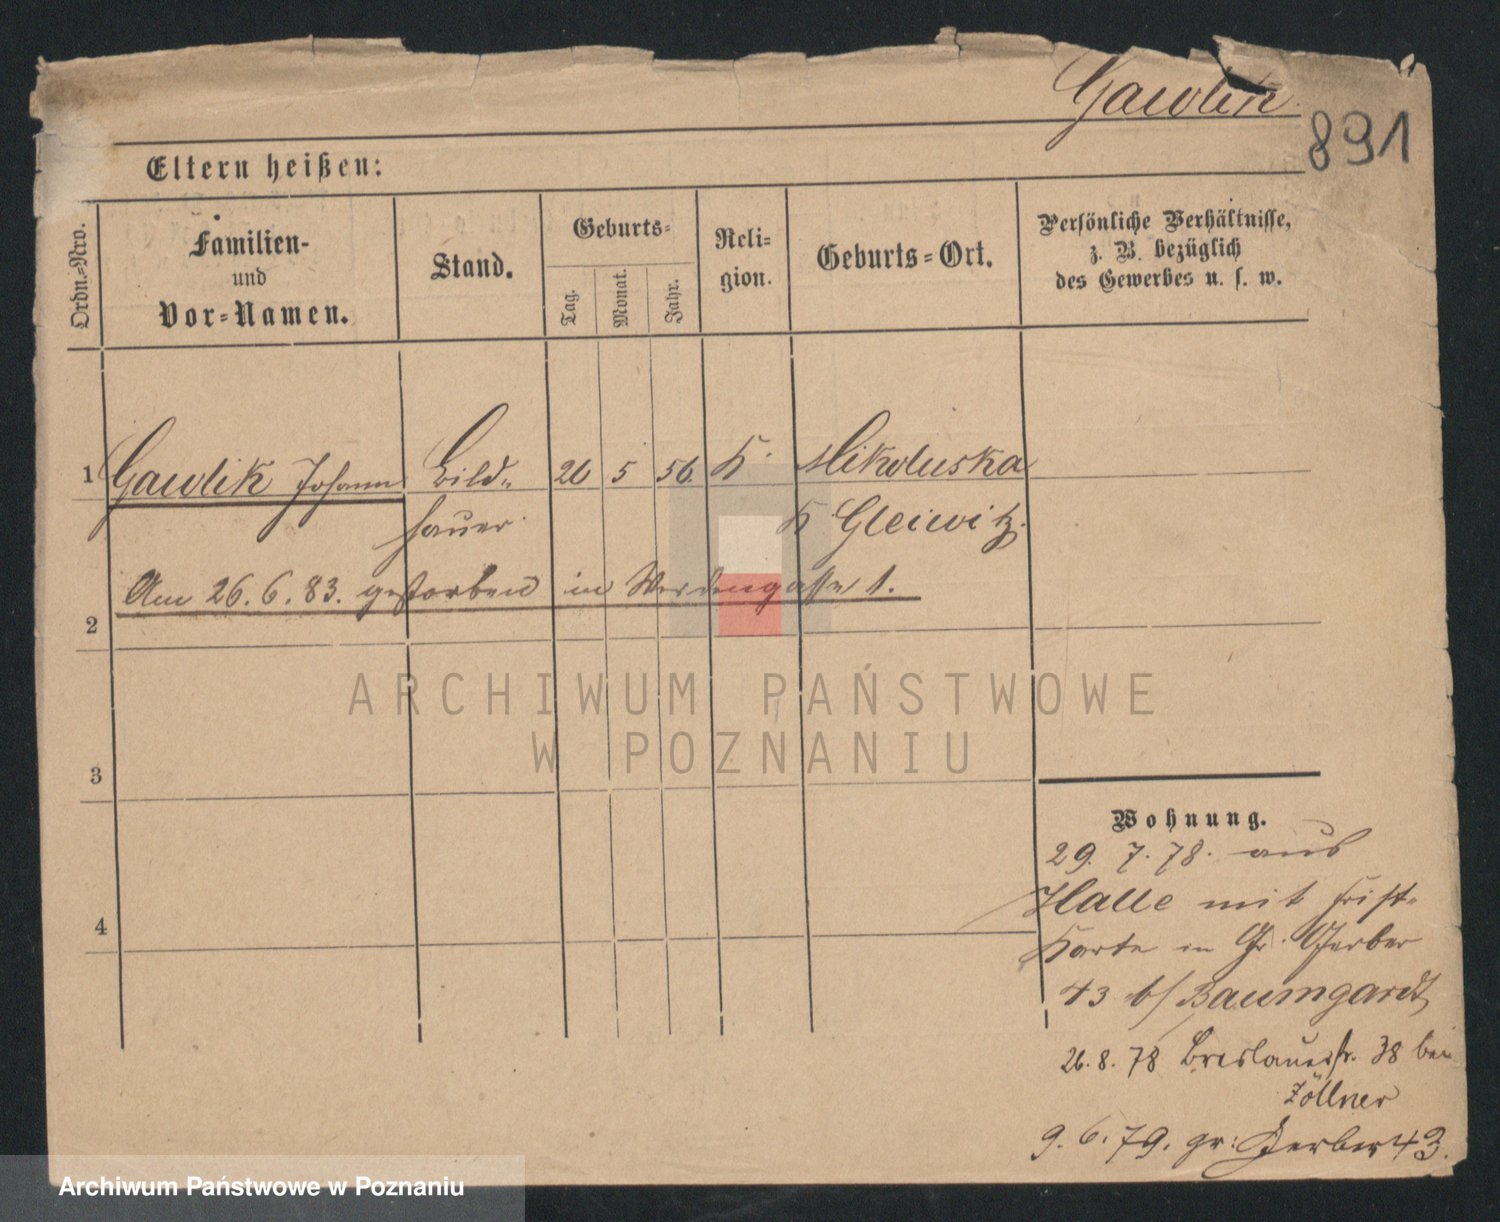 Gawlik
891
Eltern heißen:
Ordn.=Nro.
Familien-
und
Vor=Namen.
Stand.
Geburts=
Tag.
Monat.
Jahr.
Reli=
gion.
Geburts=Ort.
Persönliche Verhältnisse,
z. B. bezüglich
des Gewerbes u. s. w.
1 Gawlik Johann Bild= 26 5 56. K. Mikoluska
hauer K Gleiwitz.
Am 26.6.83. gestorben in 1.
2
3
4
ARCHIWUM PAŃSTWOWE
W POZNANIU
Wohnung.
29. 7. 78. aus
Halle mit Frist=
Karte in Gr. Gerber
43 b/ Baumgardt
26. 8. 78 Breslauerstr. 38 bei
Zöllner
9. 6. 79. gr: Gerber 43.
Archiwum Państwowe w Poznaniu